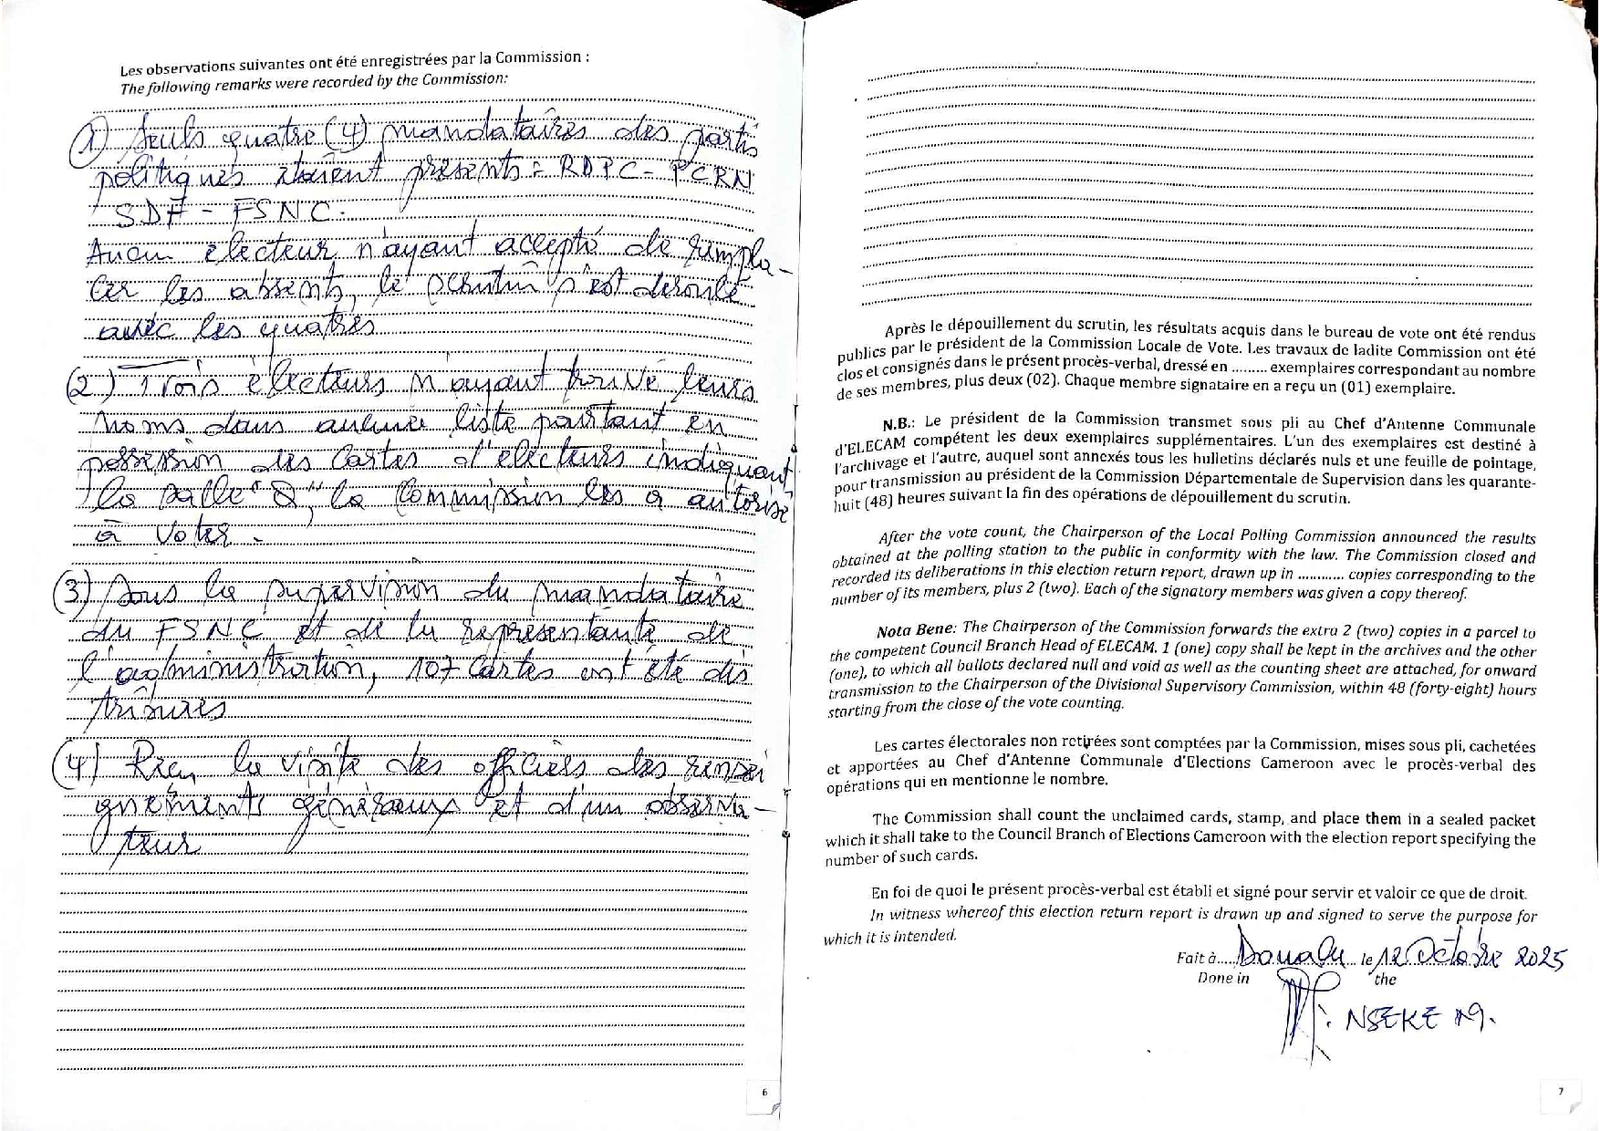 Les observations suivantes ont été enregistrées par la Commission :
The following remarks were recorded by the Commission:
(1) Seuls quatre (4) mandataires des partis
politiques étaient présents : RDPC - PCRN
SDF - FSNC.
Aucun électeur n'ayant accepté de rempla-
cer les absents, le scrutin s'est déroulé
avec les quatres
(2) Trois électeurs n'ayant trouvé leurs
noms dans aucune liste pourtant en
possession des Cartes d'électeurs indiquant
la salle " ", la Commission les a autorisé
à voter.
(3) Sous la supervision du mandataire
du FSNC et de la représentante de
l'administration, 107 Cartes ont été dis
tribuées
(4) la visite des officiers des rensei
gnements généraux et d'un observa-
teur
6
Après le dépouillement du scrutin, les résultats acquis dans le bureau de vote ont été rendus
publics par le président de la Commission Locale de Vote. Les travaux de ladite Commission ont été
clos et consignés dans le présent procès-verbal, dressé en ......... exemplaires correspondant au nombre
de ses membres, plus deux (02). Chaque membre signataire en a reçu un (01) exemplaire.
N.B.: Le président de la Commission transmet sous pli au Chef d'Antenne Communale
d'ELECAM compétent les deux exemplaires supplémentaires. L'un des exemplaires est destiné à
l'archivage et l'autre, auquel sont annexés tous les bulletins déclarés nuls et une feuille de pointage,
pour transmission au président de la Commission Départementale de Supervision dans les quarante-
huit (48) heures suivant la fin des opérations de dépouillement du scrutin.
After the vote count, the Chairperson of the Local Polling Commission announced the results
obtained at the polling station to the public in conformity with the law. The Commission closed and
recorded its deliberations in this election return report, drawn up in ............ copies corresponding to the
number of its members, plus 2 (two). Each of the signatory members was given a copy thereof.
Nota Bene: The Chairperson of the Commission forwards the extra 2 (two) copies in a parcel to
the competent Council Branch Head of ELECAM. 1 (one) copy shall be kept in the archives and the other
(one), to which all ballots declared null and void as well as the counting sheet are attached, for onward
transmission to the Chairperson of the Divisional Supervisory Commission, within 48 (forty-eight) hours
starting from the close of the vote counting.
Les cartes électorales non retirées sont comptées par la Commission, mises sous pli, cachetées
et apportées au Chef d'Antenne Communale d'Elections Cameroon avec le procès-verbal des
opérations qui en mentionne le nombre.
The Commission shall count the unclaimed cards, stamp, and place them in a sealed packet
which it shall take to the Council Branch of Elections Cameroon with the election report specifying the
number of such cards.
En foi de quoi le présent procès-verbal est établi et signé pour servir et valoir ce que de droit.
In witness whereof this election return report is drawn up and signed to serve the purpose for
which it is intended.
Fait à..... Douala ... le 12 Octobre 2025
Done in the
NSEKE M.
7